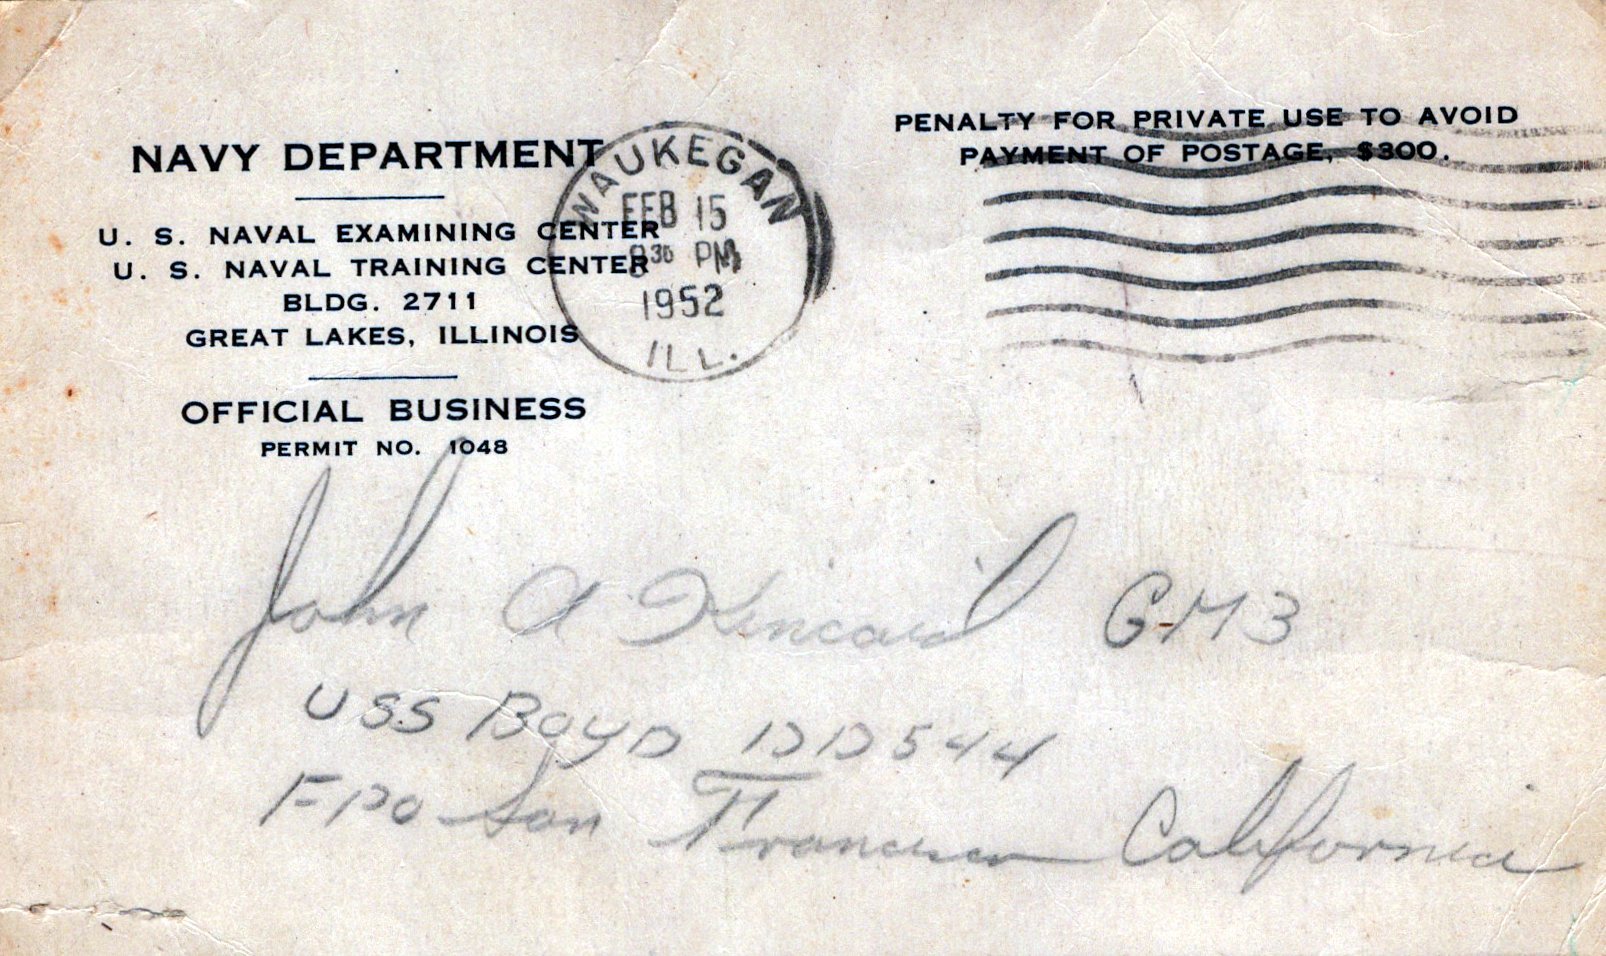 NAVY DEPARTMENT
U. S. NAVAL EXAMINING CENTER
U. S. NAVAL TRAINING CENTER
BLDG. 2711
GREAT LAKES, ILLINOIS
OFFICIAL BUSINESS
PERMIT NO. 1048
WAUKEGAN
FEB 15
8 30 PM
1952
ILL.
PENALTY FOR PRIVATE USE TO AVOID
PAYMENT OF POSTAGE, $300.
John A Kincaid GM3
USS Boyd DD544
FPO San Francisco California